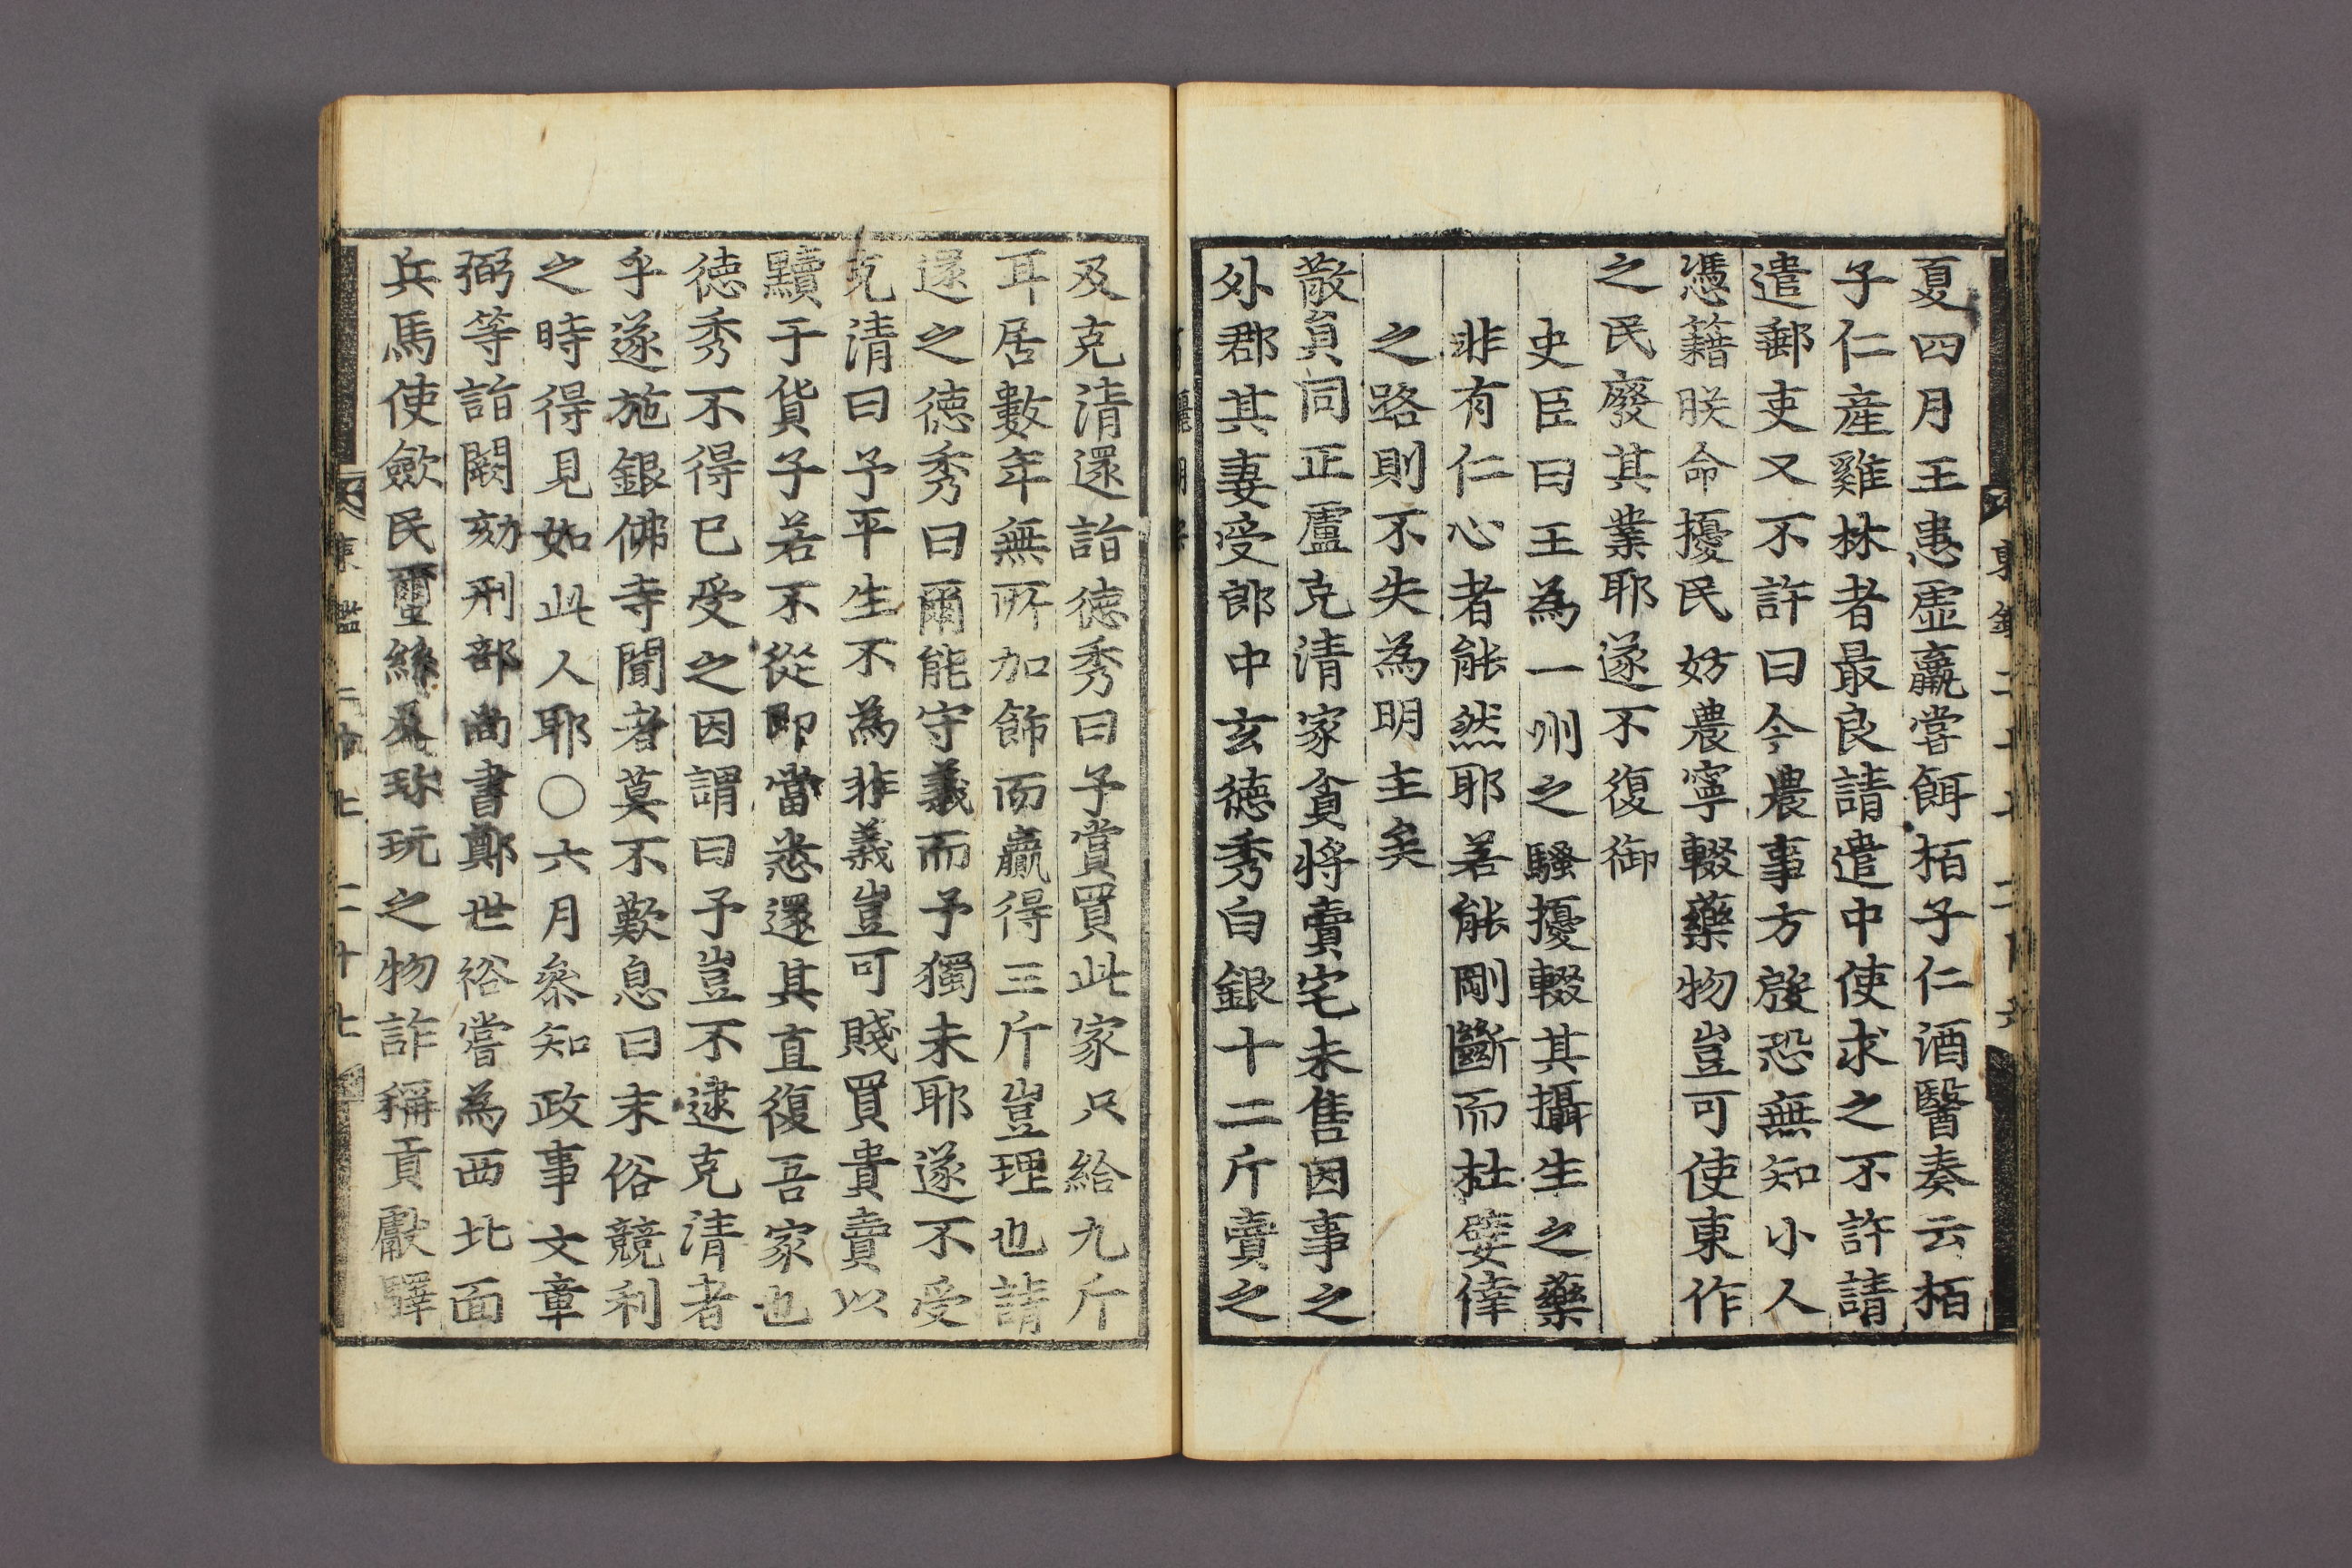 夏四月王患虛羸嘗餌栢子仁酒醫奏云栢
子仁産雞林者最良請遣中使求之不許請
遣郵吏又不許曰今農事方殷恐無知小人
憑籍朕命擾民妨農寧輟藥物豈可使東作
之民廢其業耶遂不復御
史臣曰王為一州之騷擾輟其攝生之藥
非有仁心者能然耶若能剛斷而杜嬖倖
之路則不失為明主矣
散員同正盧克清家貧將賣宅未售因事之
外郡其妻受郎中玄德秀白銀十二斤賣之
及克清還詣德秀曰予嘗買此家只給九斤
耳居數年無所加飾而贏得三斤豈理也請
還之德秀曰爾能守義而予獨未耶遂不受
克清曰予平生不為非義豈可賤買貴賣以
黷于貨子若不從即當悉還其直復吾家也
德秀不得已受之因謂曰予豈不逮克清者
乎遂施銀佛寺聞者莫不歎息曰末俗競利
之時得見如此人耶○六月叅知政事文章
弼等詣闕劾刑部尚書鄭世裕嘗為西北面
兵馬使斂民蠒絲及珎玩之物詐稱貢獻驛
東鑑 二十七 二十七